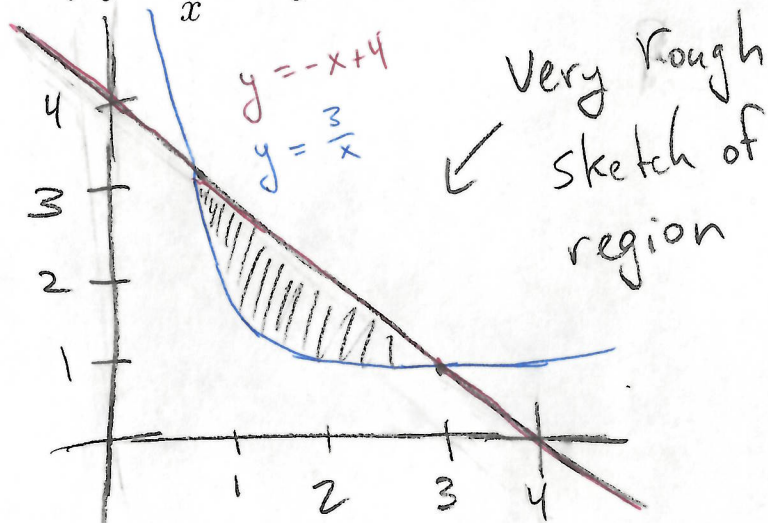 x
y = -x+4
y = 3/x
Very rough
sketch of
region
4
3
2
1
1 2 3 4